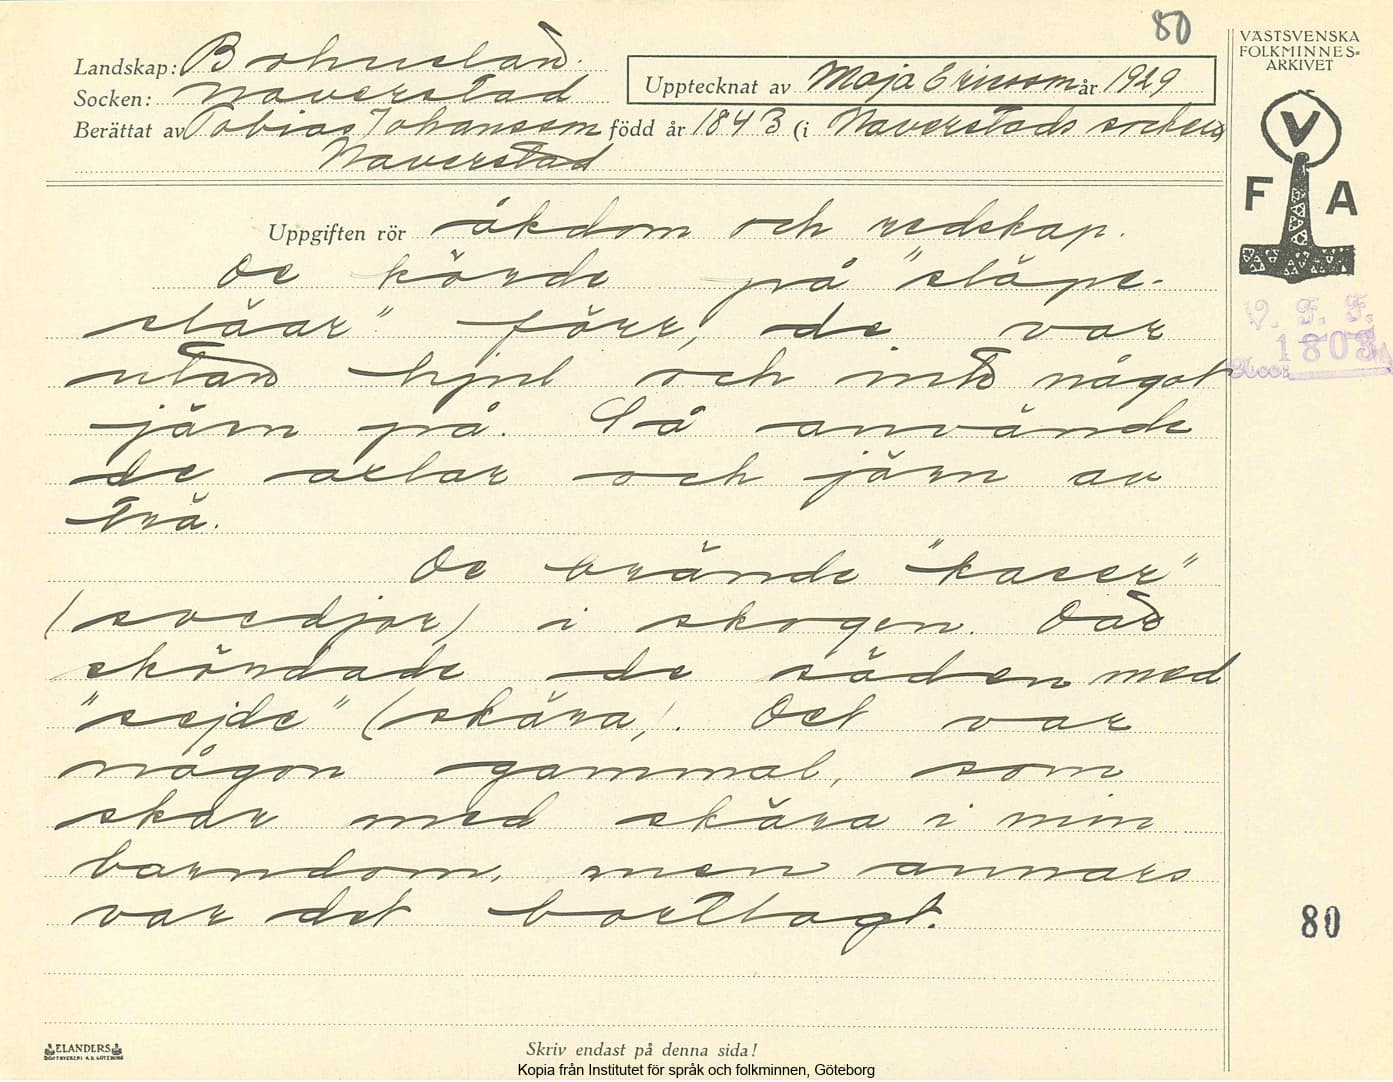 80
Landskap: Bohuslän.
Socken: Naverstad
Upptecknat av Maja Ericsson år 1929
Berättat av Tobias Johansson född år 1843 (i Naverstads socken)
Naverstad
VÄSTSVENSKA
FOLKMINNES-
ARKIVET
V
F A
V. F. F.
1803
Acc:
Uppgiften rör åkdom och redskap.
De körde på "släpe-
slåar" förr, de var
utan hjul och inte något
järn på. Så använde
de axlar och järn av
trä.
De brände "kaser"
(svedjor) i skogen. Där
skördade de säden med
"sejde" (skära). Det var
någon gammal, som
skar med skära i min
barndom, men annars
var det borttagt.
80
ELANDERS
BOKTRYCKERI A.B. GÖTEBORG
Skriv endast på denna sida!
Kopia från Institutet för språk och folkminnen, Göteborg